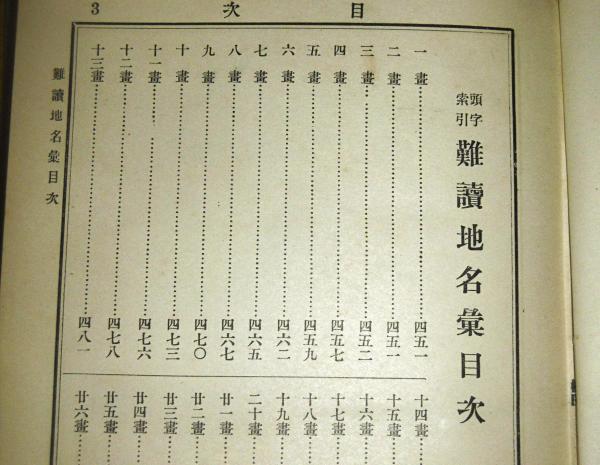 目次
3
頭字索引
難讀地名彙目次
一畫……四五一
二畫……四五一
三畫……四五二
四畫……四五七
五畫……四五九
六畫……四六二
七畫……四六五
八畫……四六七
九畫……四七〇
十畫……四七三
十一畫……四七六
十二畫……四七八
十三畫……四八一
十四畫……
十五畫……
十六畫……
十七畫……
十八畫……
十九畫……
二十畫……
廿一畫……
廿二畫……
廿三畫……
廿四畫……
廿五畫……
廿六畫……
難讀地名彙目次